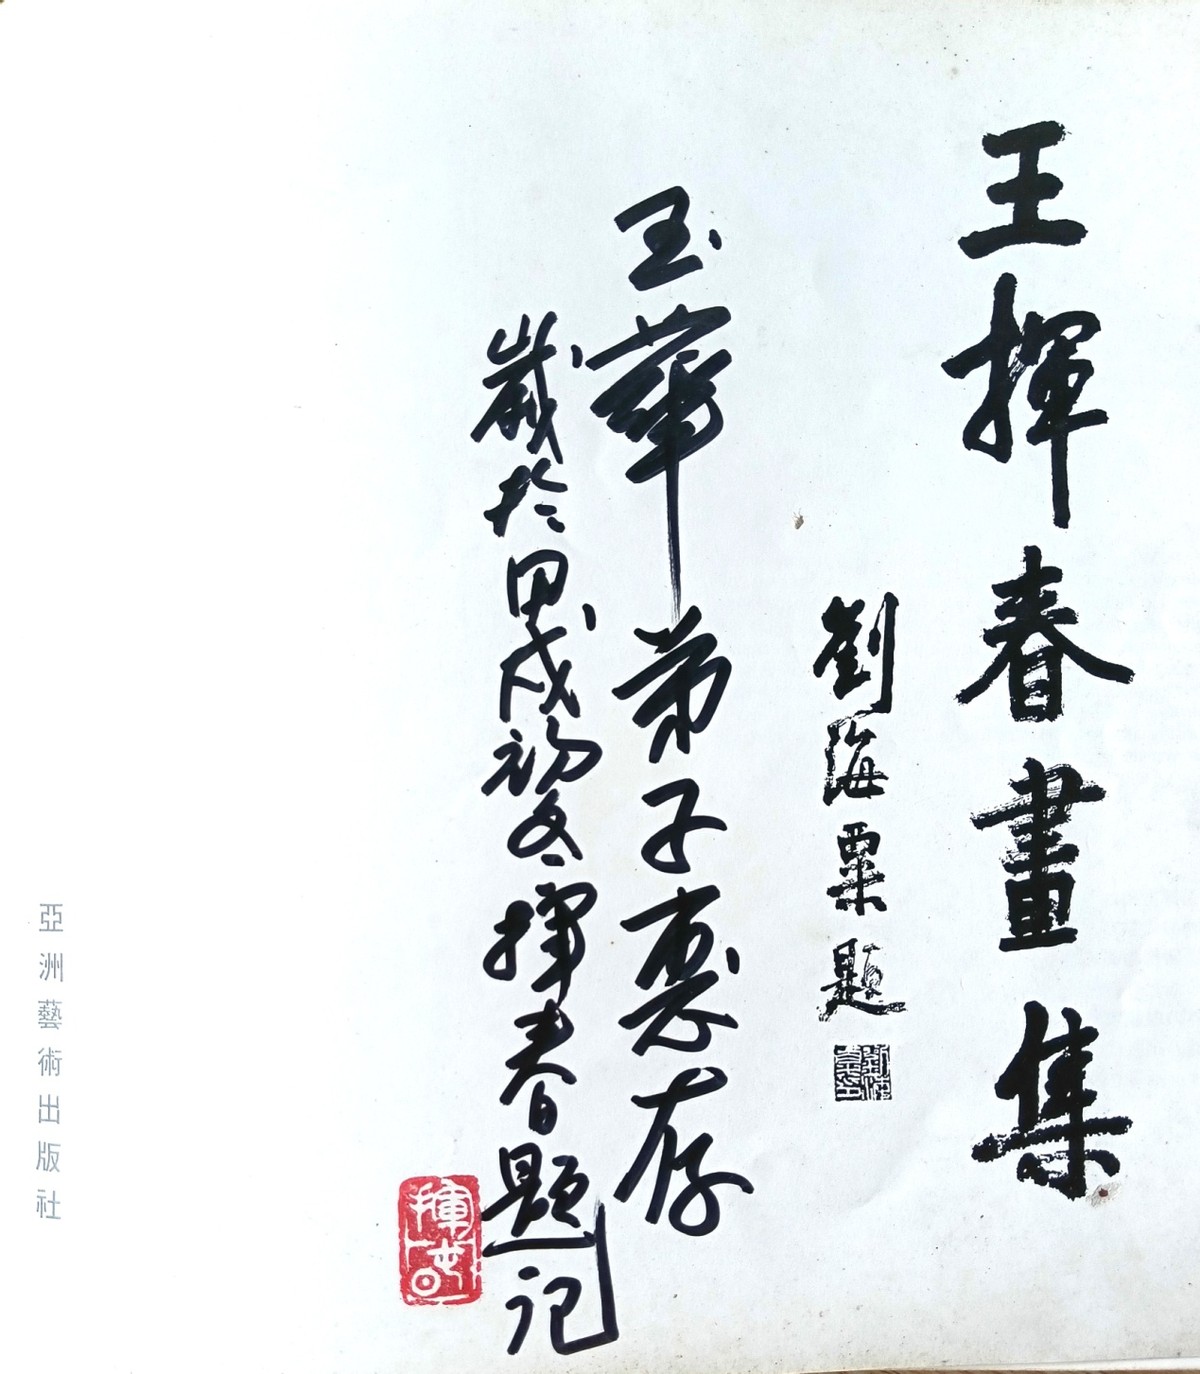 王揮春畫集
劉海粟題
玉華弟子惠存
歲於甲戌初冬揮春題記
亞洲藝術出版社